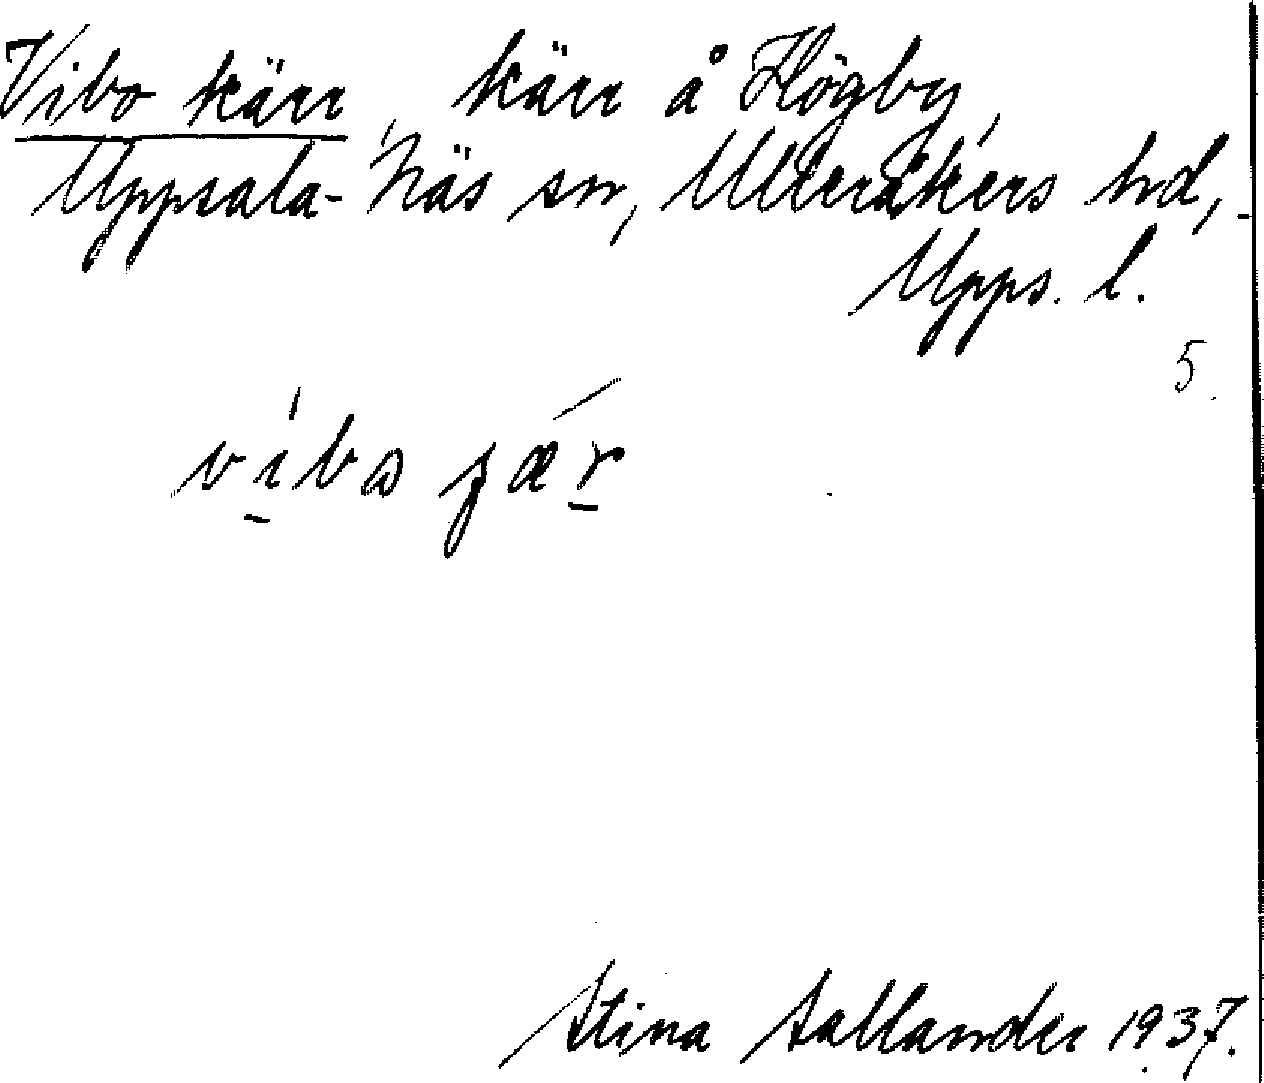 Vibo kärr, kärr å Högby,
Uppsala-Näs sn, Ulleråkers hd,
Upps. l.
5.
Stina Sallander 1937.